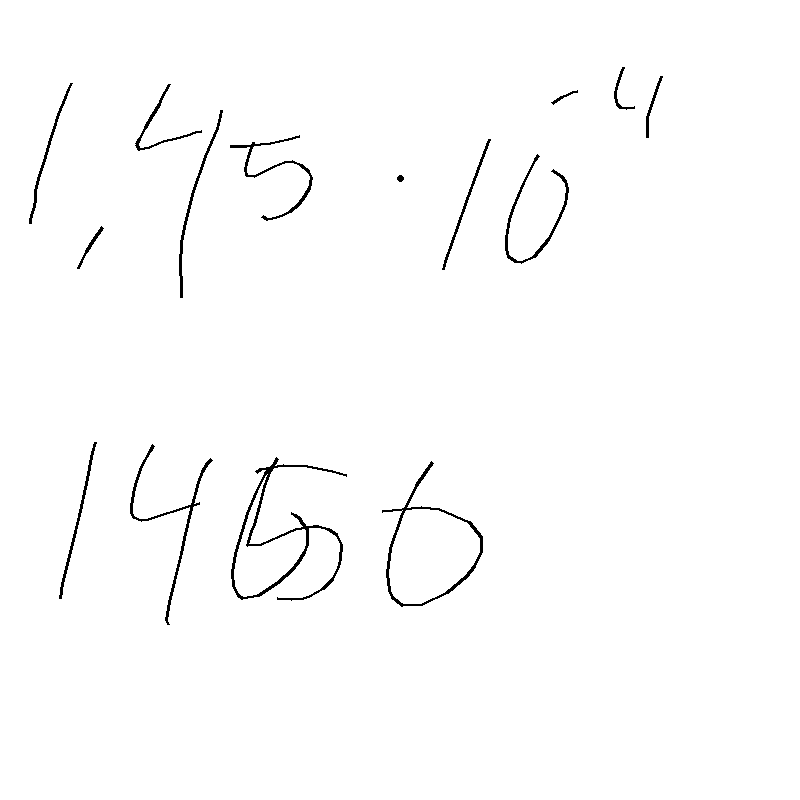 1,45 · 10⁻⁴
1450